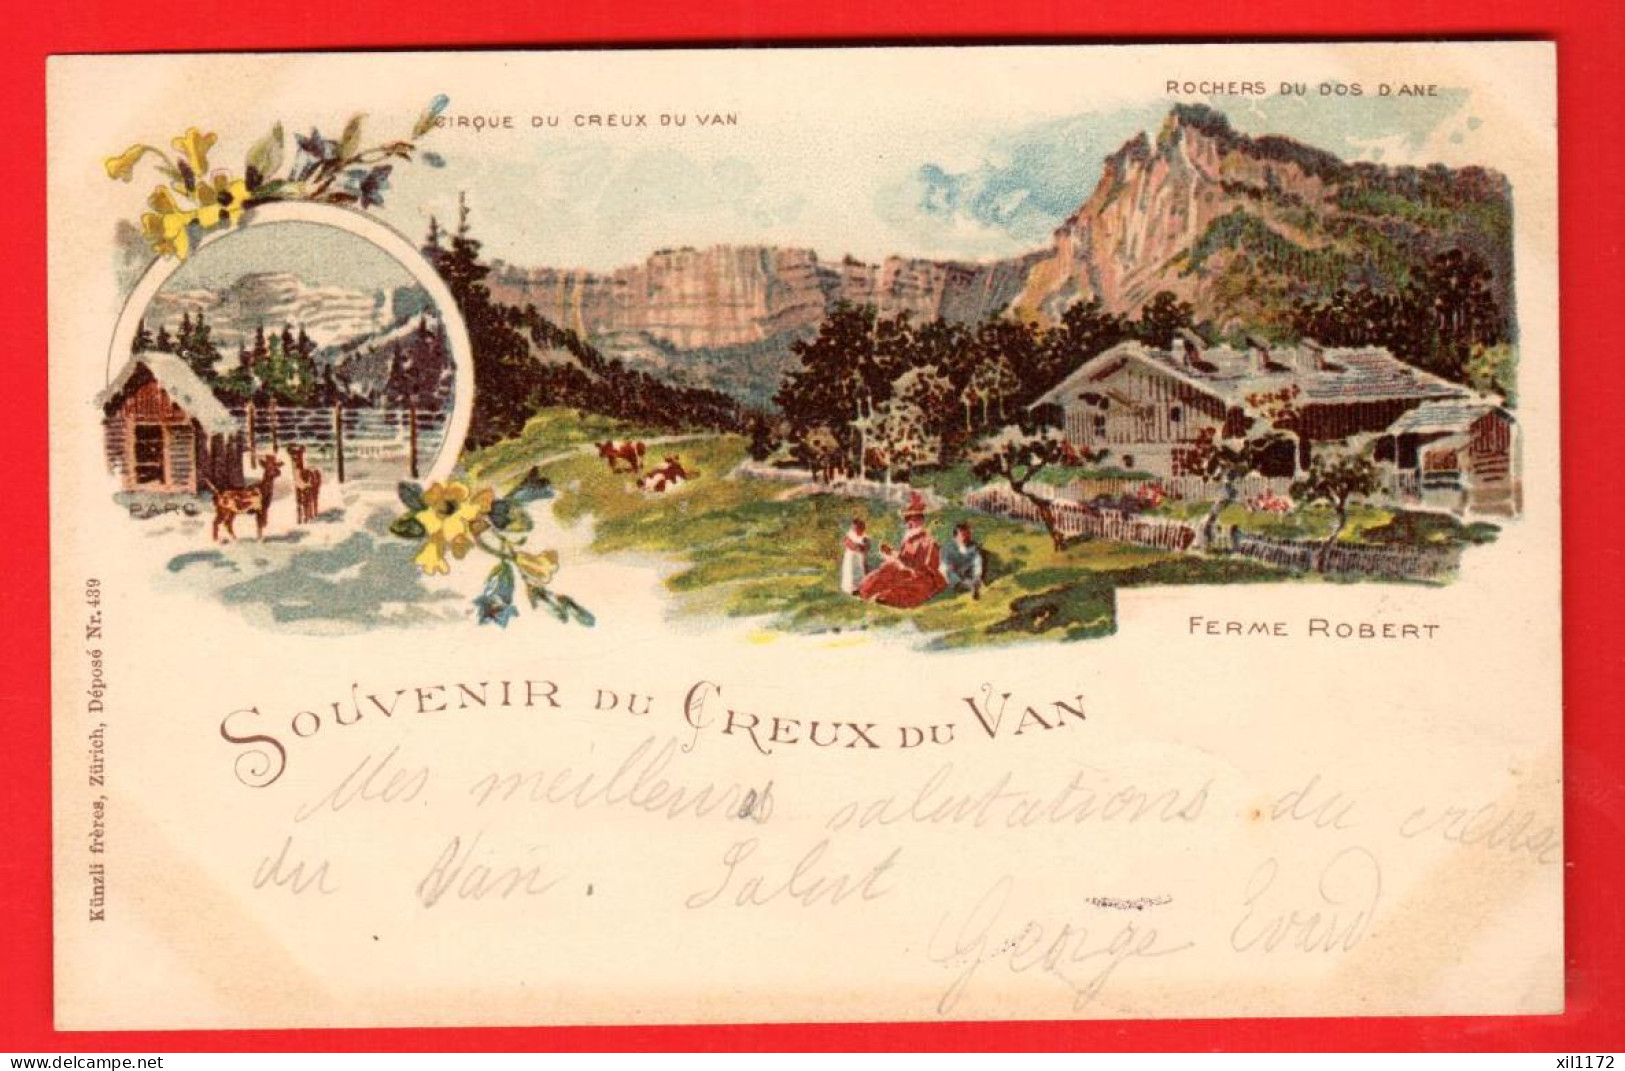 ROCHERS DU DOS D'ANE
CIRQUE DU CREUX DU VAN
PARC
FERME ROBERT
SOUVENIR DU CREUX DU VAN
Künzli frères, Zürich, Déposé Nr. 439
Mes meilleurs salutations du creuse
du Van. Salut
George Evard
delcampe.net
xil1172